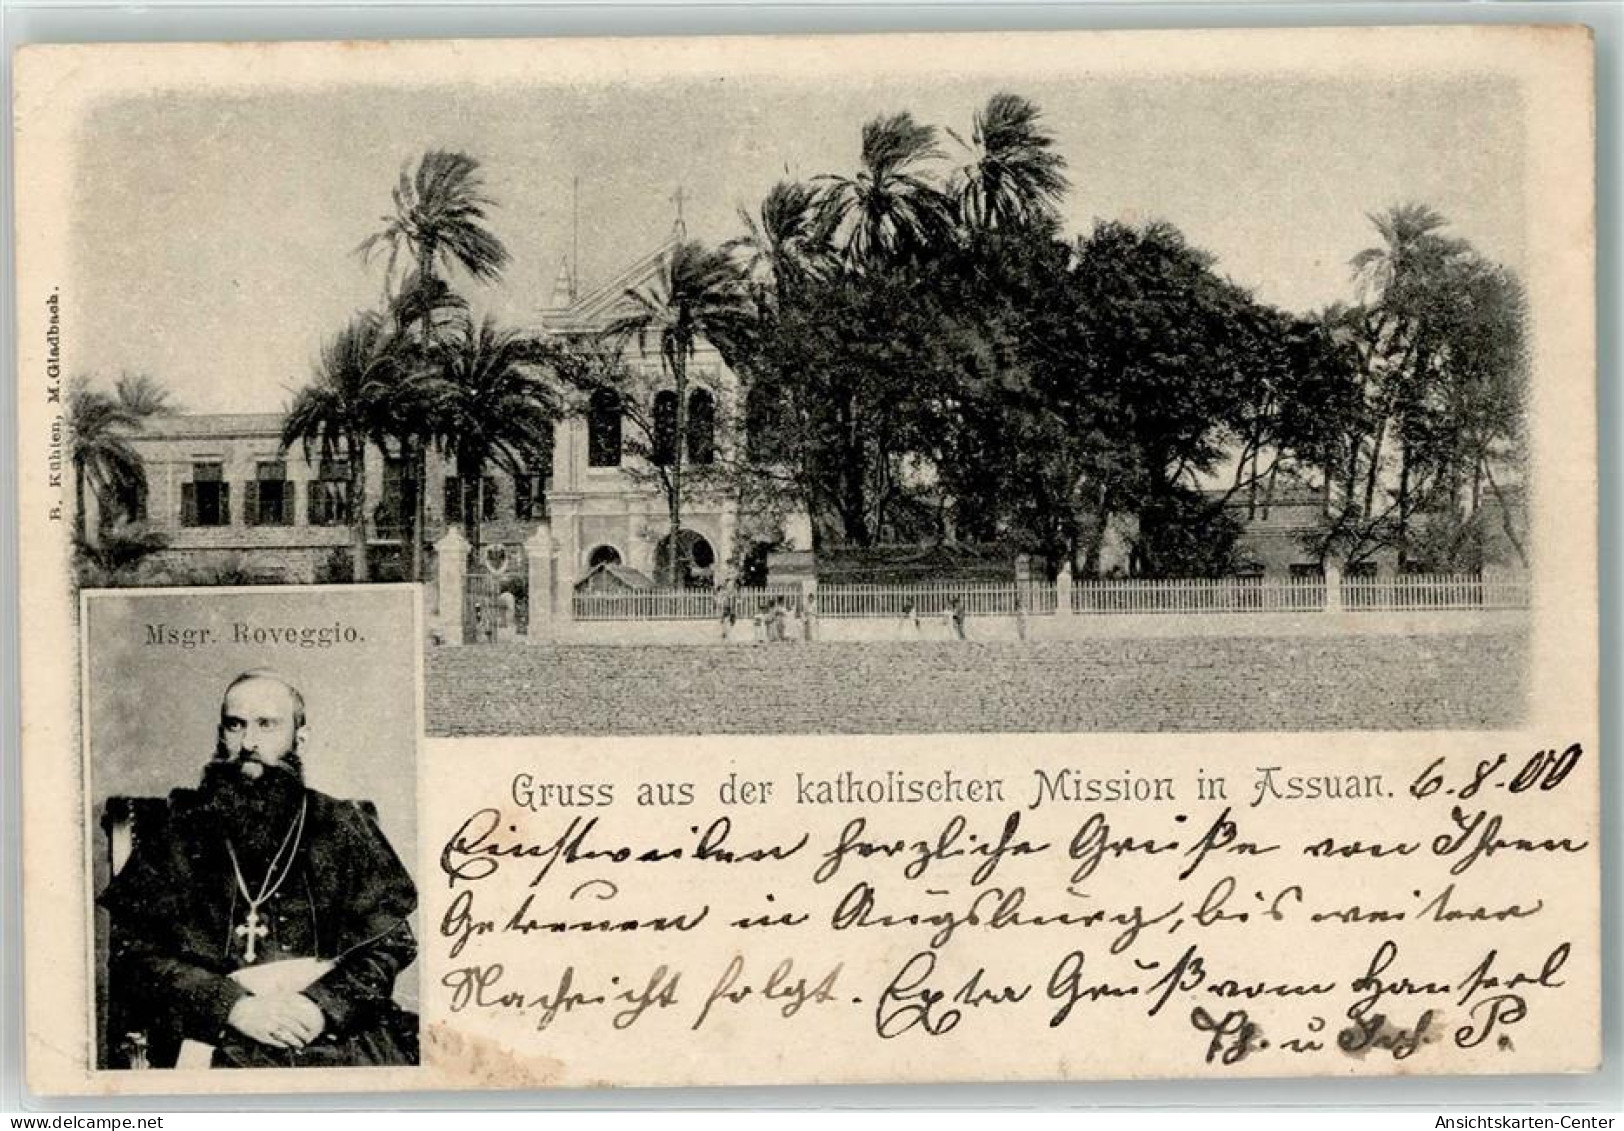 B. Kühlen, M.Gladbach.
Msgr. Roveggio.
Gruss aus der katholischen Mission in Assuan. 6.8.00
Einstweilen herzliche Grüße von Ihren
Getreuen in Augsburg, bis weitere
Nachricht folgt. Extra Gruß vom Hanserl
Th. u. P.
Ansichtskarten-Center